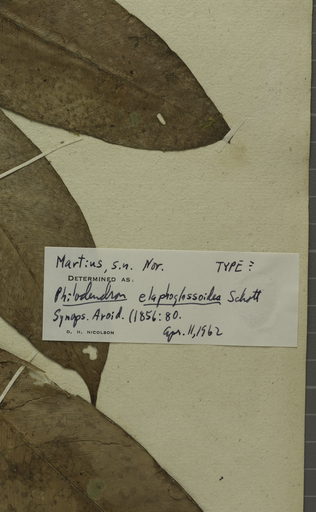 Martius, s.n. Nor. TYPE?
DETERMINED AS:
Philodendron elaphoglossoides Schott
Synops. Aroid. (1856:80.
D. H. NICOLSON Apr. 11, 1962